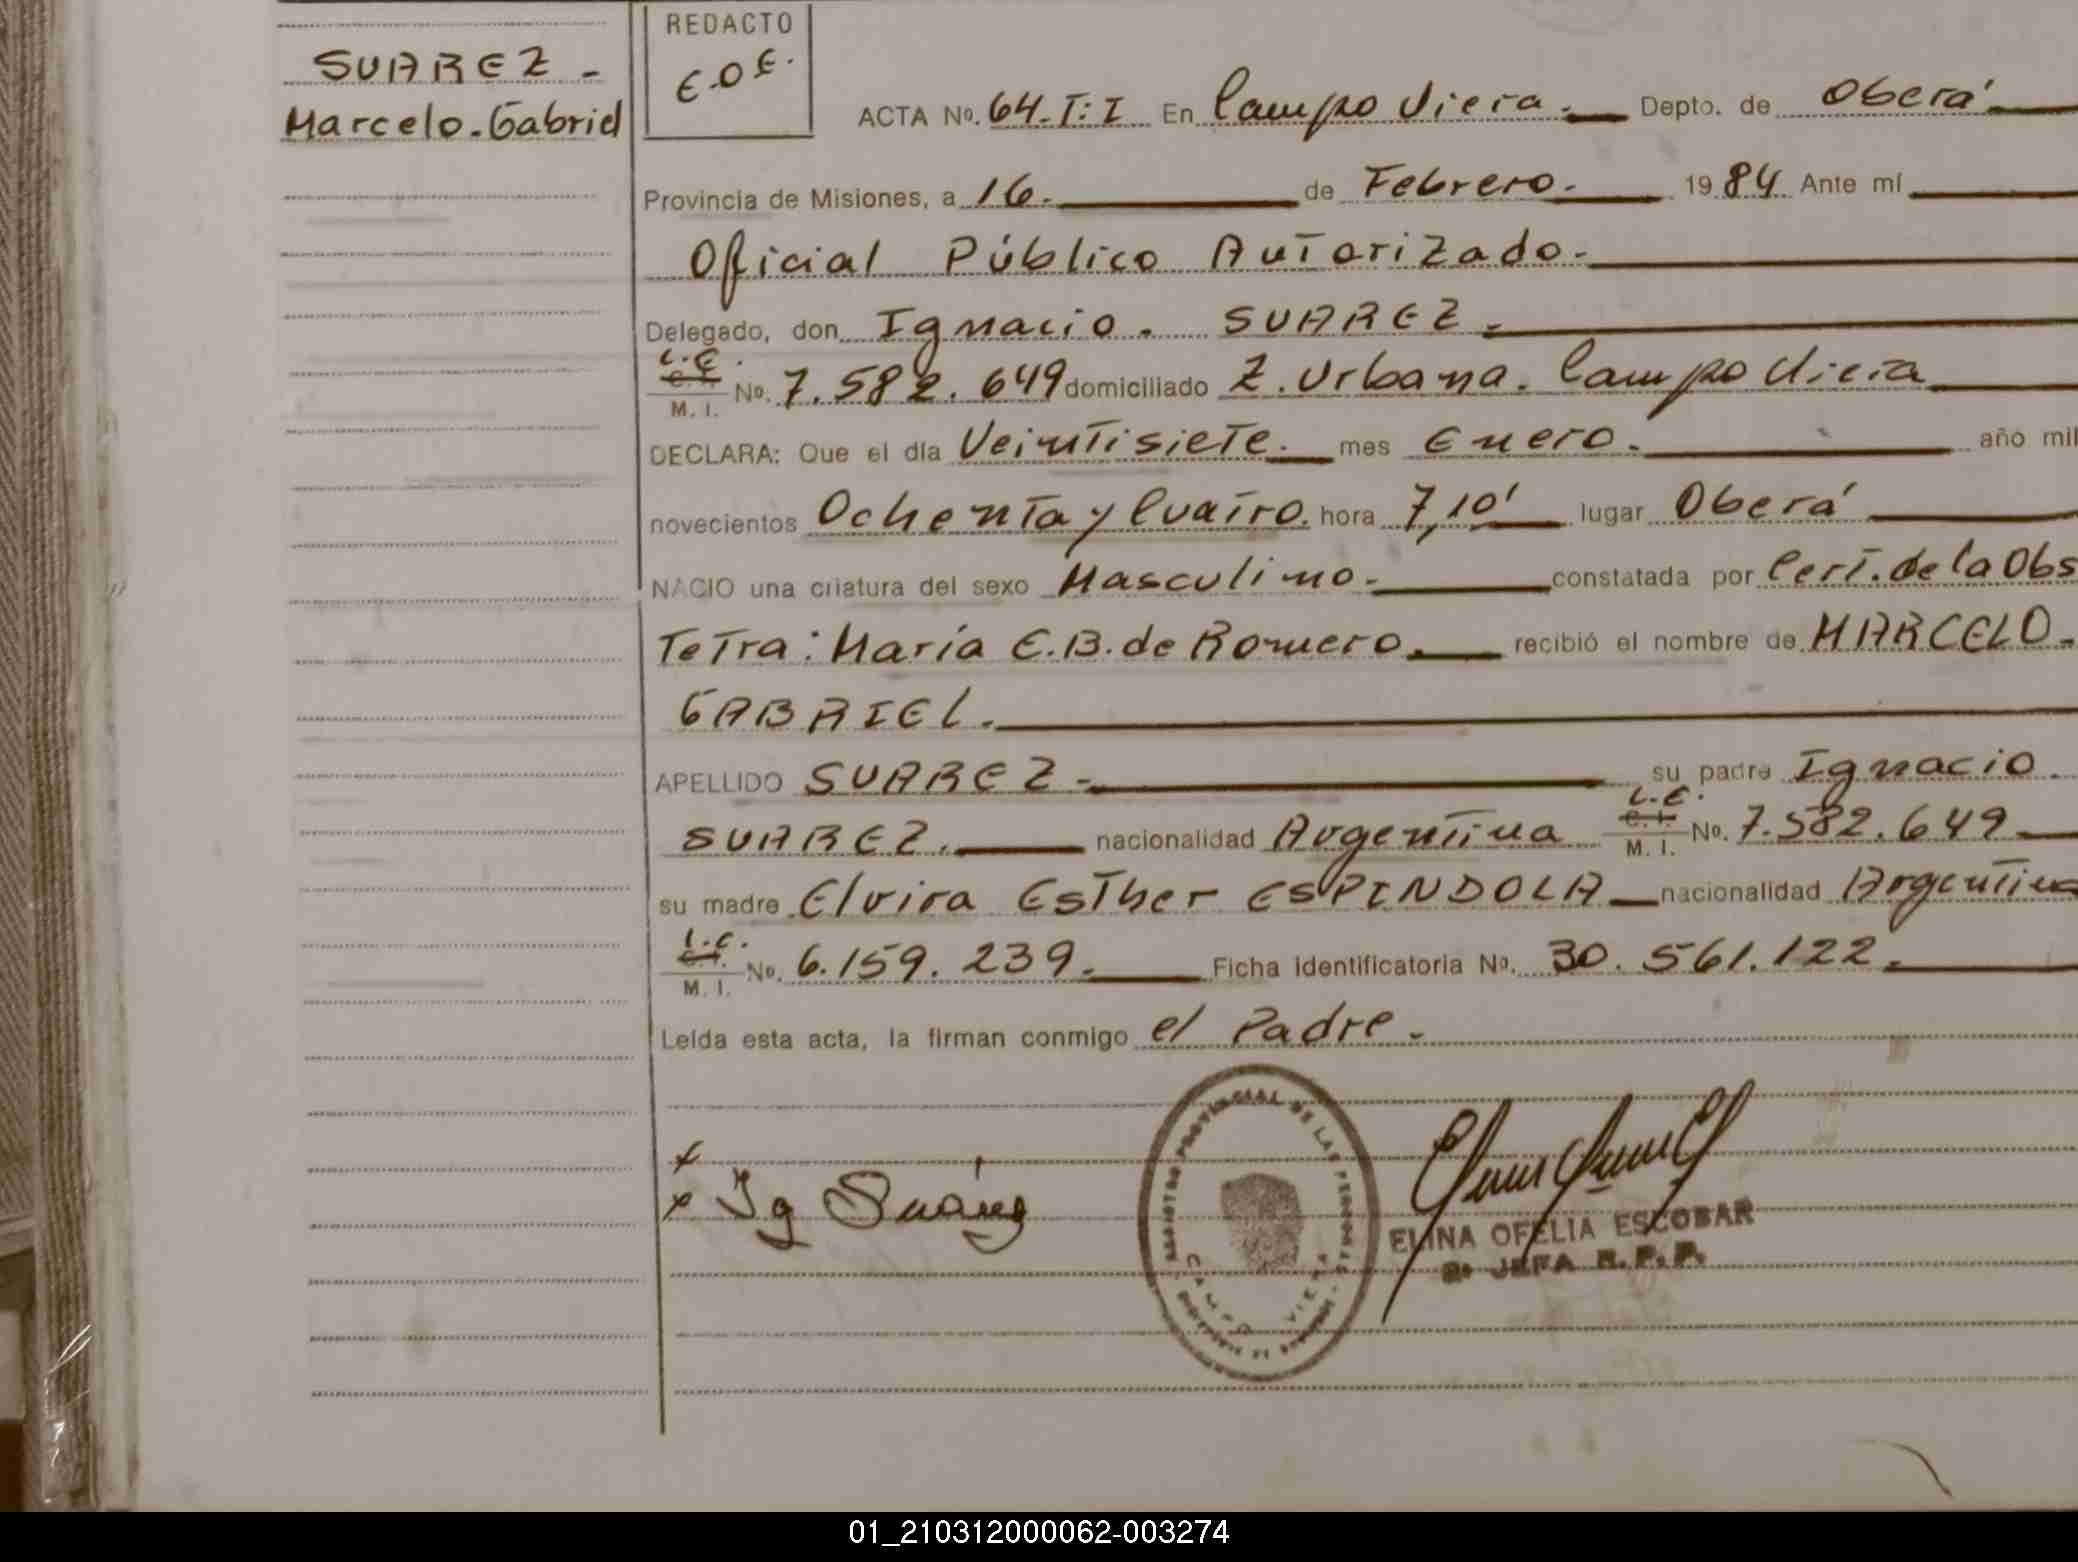 SUAREZ -
Marcelo. Gabriel
REDACTO
E.O.E.
ACTA No. 64. T: I En Campo Viera. Depto. de Oberá
Provincia de Misiones, a 16. de Febrero. 1984 Ante mí
Oficial Público Autorizado.
Delegado, don Ignacio. SUAREZ.
L.E.
C. I.
M. I. No. 7.582.649 domiciliado Z. Urbana. Campo Viera
DECLARA: Que el día Veintisiete. mes Enero. año mil
novecientos Ochenta y Cuatro. hora 7,10' lugar Oberá
NACIO una criatura del sexo Masculino. constatada por Cert. de la Obs
Tetra: María E.B. de Romero. recibió el nombre de MARCELO.
GABRIEL.
APELLIDO SUAREZ - su padre Ignacio.
SUAREZ. nacionalidad Argentina L.E. C. I. M. I. No. 7.582.649
su madre Elvira Esther ESPINDOLA nacionalidad Argentina
L.C.
C. I.
M. I. No. 6.159.239. Ficha identificatoria No. 30.561.122.
Leída esta acta, la firman conmigo el Padre.
x
x Ig Suárez
REGISTRO PROVINCIAL DE LAS PERSONAS
CAMPO VIERA
ELINA OFELIA ESCOBAR
JEFA R.P.P.
01_210312000062-003274